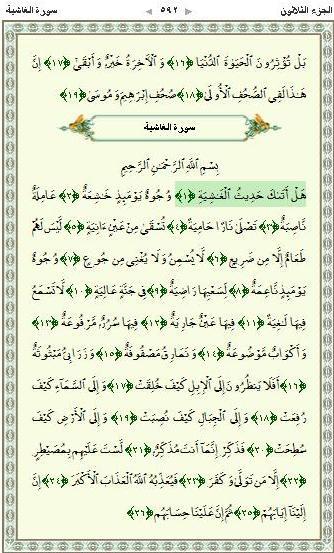 الجزء الثلاثون ٥٩٢ سورة الغاشية
بَلْ تُؤْثِرُونَ الْحَيَوٰةَ الدُّنْيَا ﴿١٦﴾ وَالْآخِرَةُ خَيْرٌ وَأَبْقَىٰ ﴿١٧﴾ إِنَّ
هَٰذَا لَفِي الصُّحُفِ الْأُولَىٰ ﴿١٨﴾ صُحُفِ إِبْرَٰهِيمَ وَمُوسَىٰ ﴿١٩﴾
سورة الغاشية
بِسْمِ اللَّهِ الرَّحْمَٰنِ الرَّحِيمِ
هَلْ أَتَىٰكَ حَدِيثُ الْغَٰشِيَةِ ﴿١﴾ وُجُوهٌ يَوْمَئِذٍ خَٰشِعَةٌ ﴿٢﴾ عَامِلَةٌ
نَّاصِبَةٌ ﴿٣﴾ تَصْلَىٰ نَارًا حَامِيَةً ﴿٤﴾ تُسْقَىٰ مِنْ عَيْنٍ ءَانِيَةٍ ﴿٥﴾ لَّيْسَ لَهُمْ
طَعَامٌ إِلَّا مِن ضَرِيعٍ ﴿٦﴾ لَّا يُسْمِنُ وَلَا يُغْنِي مِن جُوعٍ ﴿٧﴾ وُجُوهٌ
يَوْمَئِذٍ نَّاعِمَةٌ ﴿٨﴾ لِّسَعْيِهَا رَاضِيَةٌ ﴿٩﴾ فِي جَنَّةٍ عَالِيَةٍ ﴿١٠﴾ لَّا تَسْمَعُ
فِيهَا لَٰغِيَةً ﴿١١﴾ فِيهَا عَيْنٌ جَارِيَةٌ ﴿١٢﴾ فِيهَا سُرُرٌ مَّرْفُوعَةٌ ﴿١٣﴾
وَأَكْوَابٌ مَّوْضُوعَةٌ ﴿١٤﴾ وَنَمَارِقُ مَصْفُوفَةٌ ﴿١٥﴾ وَزَرَابِيُّ مَبْثُوثَةٌ
﴿١٦﴾ أَفَلَا يَنظُرُونَ إِلَى الْإِبِلِ كَيْفَ خُلِقَتْ ﴿١٧﴾ وَإِلَى السَّمَآءِ كَيْفَ
رُفِعَتْ ﴿١٨﴾ وَإِلَى الْجِبَالِ كَيْفَ نُصِبَتْ ﴿١٩﴾ وَإِلَى الْأَرْضِ كَيْفَ
سُطِحَتْ ﴿٢٠﴾ فَذَكِّرْ إِنَّمَآ أَنتَ مُذَكِّرٌ ﴿٢١﴾ لَّسْتَ عَلَيْهِم بِمُصَيْطِرٍ
﴿٢٢﴾ إِلَّا مَن تَوَلَّىٰ وَكَفَرَ ﴿٢٣﴾ فَيُعَذِّبُهُ اللَّهُ الْعَذَابَ الْأَكْبَرَ ﴿٢٤﴾ إِنَّ
إِلَيْنَآ إِيَابَهُمْ ﴿٢٥﴾ ثُمَّ إِنَّ عَلَيْنَا حِسَابَهُم ﴿٢٦﴾